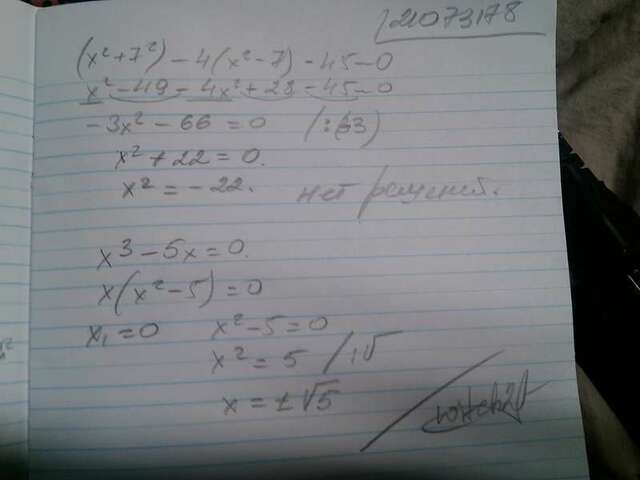 21073178
(x²+7²) - 4(x²-7) - 45 = 0
x² - 49 - 4x² + 28 - 45 = 0
-3x² - 66 = 0 (:(-3)
x² + 22 = 0.
x² = -22. нет решений.
x³ - 5x = 0.
x(x² - 5) = 0
x₁ = 0 x² - 5 = 0
x² = 5 /√
x = ±√5